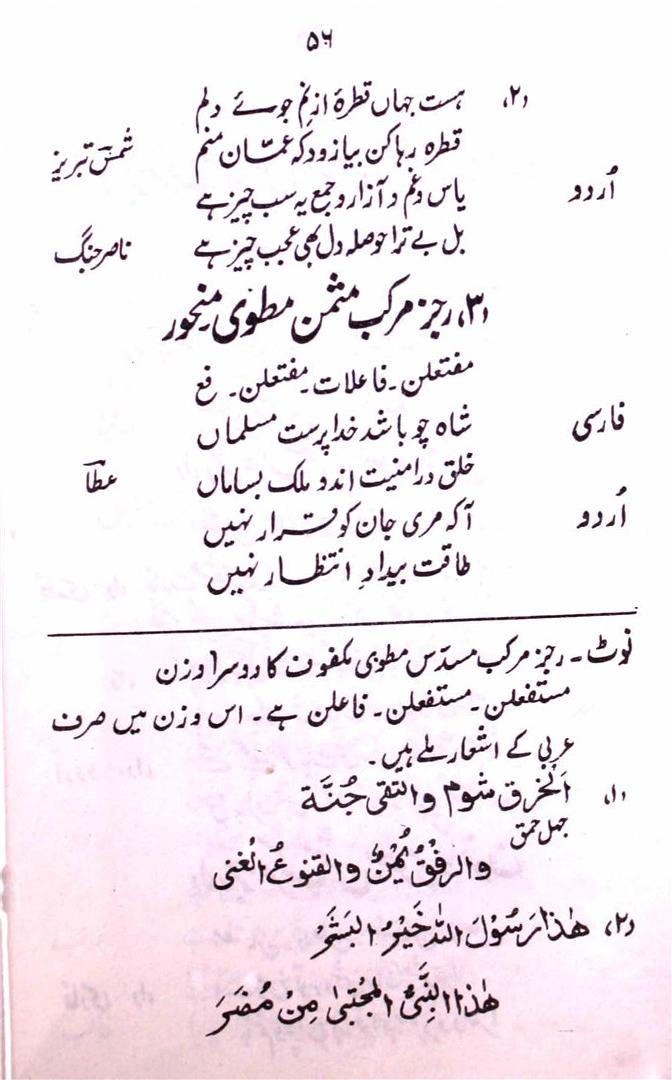 ۵۶
(۲) ہست جہاں قطرۂ از نم جوئے دلم
قطرہ رہا کن بیا زود کہ عمّان منم شمس تبریز
اُردو یاس و غم و آزار و جمع یہ سب چیز ہے
بل بے ترا حوصلہ دل بھی عجب چیز ہے ناصر جنگ
(۳) رجز مرکب مثمن مطوی منحور
مفتعلن۔ فاعلات۔ مفتعلن۔ فع
فارسی شاہ چو باشد خدا پرست مسلماں
خلق در امنیت اند و ملک بساماں عطا
اُردو آ کہ مری جان کو قرار نہیں
طاقت بیدادِ انتظار نہیں
نوٹ۔ رجز مرکب مسدّس مطوی مکفوف کا دوسرا وزن
مستفعلن۔ مستفعلن۔ فاعلن ہے۔ اس وزن میں صرف
عربی کے اشعار ملے ہیں۔
(۱) اَلخرق شوم والتقی جُنَّة
جہل حمق
والرفقُ یُمنٌ والقنوعُ الغنی
(۲) ھٰذا رَسُوْلَ اللہ خَیْرُ البَشَرْ
ھٰذا النَّبِیُّ المجْتبیٰ مِنْ مُضَرَ